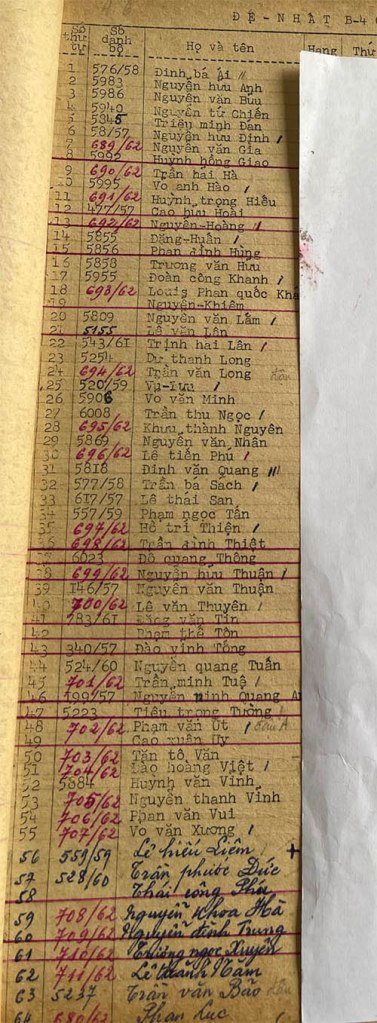 ĐỆ-NHẤT B-4
Số thứ tự Số danh bộ Họ và tên Hạng Thứ
1 576/58 Đinh bá ái
2 5983 Nguyễn hưu Anh
3 5986 Nguyễn văn Bưu
4 5940 Nguyễn tử Chiến
5 5345 Triệu minh Đan
6 58/57 Nguyễn hưu Định
7 689/62 Nguyễn văn Gia
8 5992 Huỳnh hồng Giao
9 690/62 Trần hải Hà
10 5995 Vo anh Hào
11 691/62 Huỳnh trọng Hiếu
12 477/57 Cao hưu Hoài
13 692/62 Nguyễn-Hoàng
14 5855 Đặng-Huân
15 5856 Phan đình Hùng
16 5858 Trương văn Hưu
17 5955 Đoàn công Khanh
18 693/62 Louis Phan quốc Khá
19 Nguyễn-Khiêm
20 5809 Nguyễn văn Lắm
21 5155 Lê văn Lân
22 543/61 Trịnh hai Lân
23 5254 Dư thanh Long
24 694/62 Trần văn Long
25 520/59 Vu-Lưu
26 5908 Vo văn Minh
27 6008 Trần thu Ngọc
28 695/62 Khưu thành Nguyên
29 5869 Nguyễn văn Nhân
30 696/62 Lê tiến Phú
31 5818 Đinh văn Quang
32 577/58 Trần bá Sach
33 617/57 Lê thái San
34 557/59 Phạm ngọc Tấn
35 697/62 Hồ trí Thiện
36 698/62 Trần đình Thiệt
37 6023 Đỗ quang Thông
38 699/62 Nguyễn hưu Thuận
39 146/57 Nguyễn văn Thuận
40 700/62 Lê văn Thuyên
41 783/61 Đặng văn Tín
42 Phạm thế Tôn
43 340/57 Đào vinh Tông
44 524/60 Nguyễn quang Tuấn
45 701/62 Trần minh Tuệ
46 199/57 Nguyễn minh Quang A
47 5223 Tiêu trọng Tường
48 702/62 Phạm văn Út
49 Cao xuân Uy
50 703/62 Tấn tô Văn
51 704/62 Đào hoàng Việt
52 5884 Huỳnh văn Vinh
53 705/62 Nguyễn thanh Vinh
54 706/62 Phan văn Vui
55 707/62 Vo văn Xương
56 559/59 Lê hiếu Liêm +
57 528/60 Trần phước Đức
58 Thái công Phú
59 708/62 Nguyễn Khoa Hà
60 709/62 Nguyễn đình Trung
61 710/62 Trương ngọc Xuyên
62 711/62 Lê thành Năm
63 5237 Trần văn Bảo
64 680/62 Phan Lục